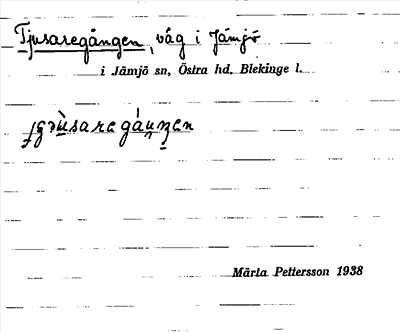 Tjusaregången, väg i Jämjö
i Jämjö sn, Östra hd, Blekinge l.
Märta Pettersson 1938